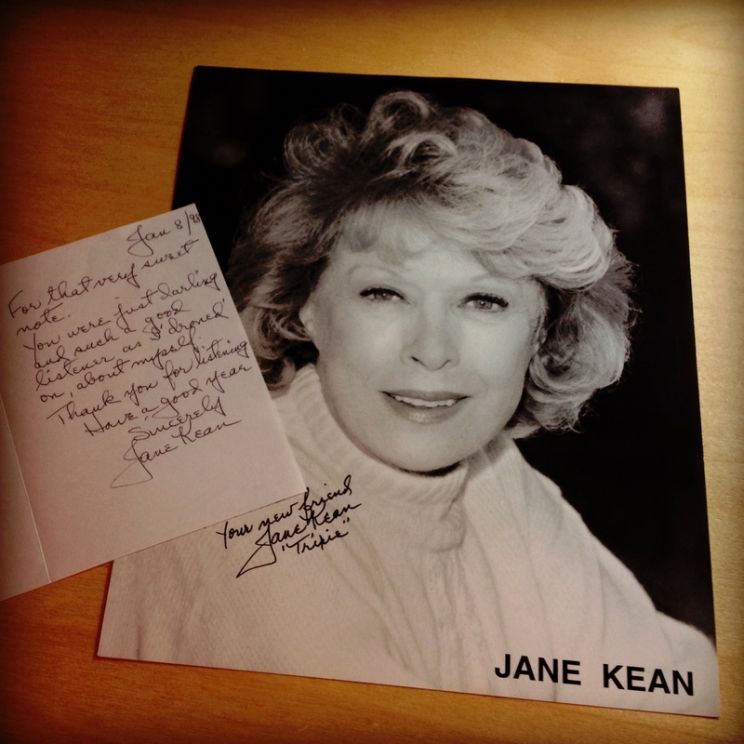 Jan 8/98
For that very sweet
note.
You were just darling
and such a good
listener as I 'droned'
on, about myself.
Thank you for listening
Have a good year
Sincerely
Jane Kean
Your new friend
Jane Kean
"Trixie"
JANE KEAN